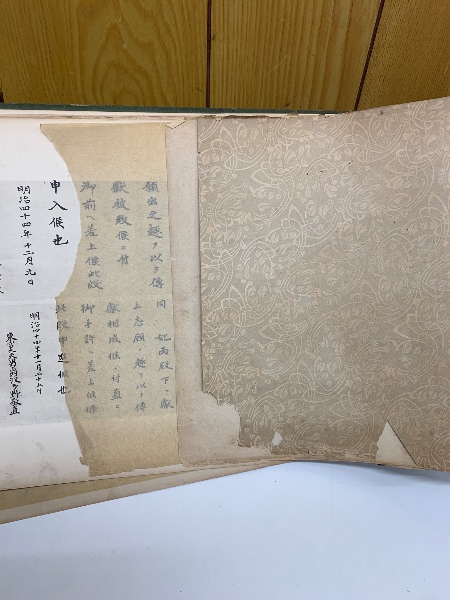 願出之趣ヲ以テ傳
献被致候ニ付
御前ヘ差上候此段
申入候也
明治四十四年十二月九日
同妃両殿下ヘ献
上志願ノ趣ヲ以テ傳
献相成候ニ付直ニ
御手許ヘ差上候條
此段申進候也
明治四十四年十一月二十
東宮大夫